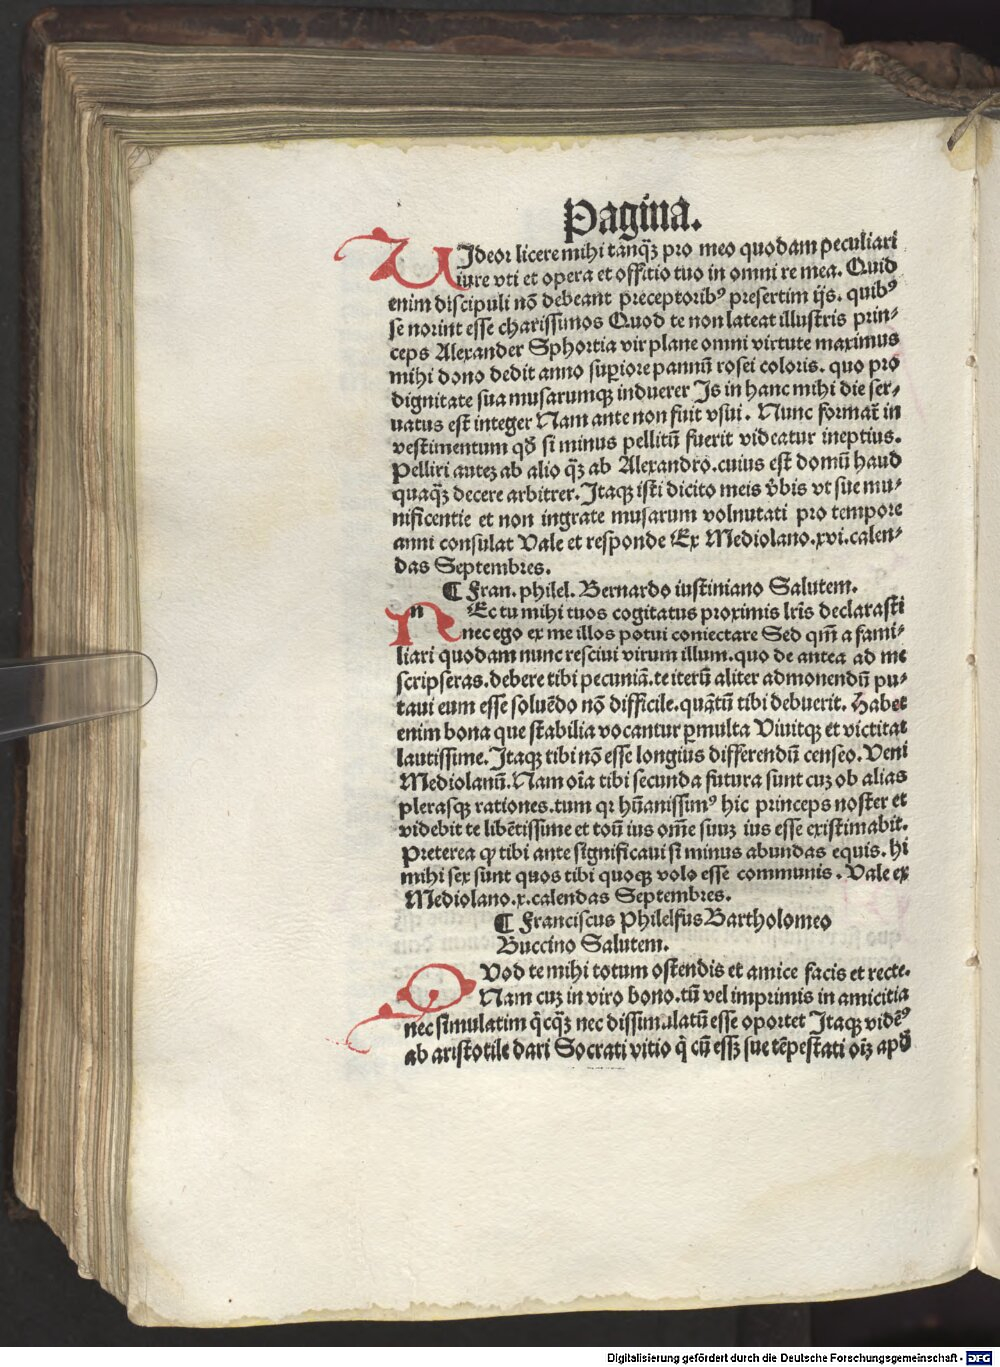 Pagina.
UIdeor licere mihi tanqȝ pro meo quodam peculiari
iure vti et opera et offitio tuo in omni re mea. Quid
enim discipuli nō debeant preceptoribꝰ presertim ijs. quibꝰ
se norint esse charissimos Quod te non lateat illustris prin⸗
ceps Alexander Sphortia vir plane omni virtute maximus
mihi dono dedit anno superiore pannū rosei coloris. quo pro
dignitate sua musarumqȝ induerer Is in hanc mihi die ser⸗
uatus est integer Nam ante non fuit vsui. Nunc format̄ in
vestimentum qđ si minus pellitū fuerit videatur ineptius.
Pelliri autez ab alio qȝ ab Alexandro. cuius est domū haud
quaqȝ decere arbitrer. Itaqȝ isti dicito meis v̄bis vt sue mu⸗
nificentie et non ingrate musarum volnutati pro tempore
anni consulat Vale et responde Ex Mediolano. xvi. calen⸗
das Septembres.
¶ Fran. philel. Bernardo iustiniano Salutem.
nEc tu mihi tuos cogitatus proximis lr̄is declarasti
nec ego ex me illos potui coniectare Sed qm̄ a fami⸗
liari quodam nunc resciui virum illum. quo de antea ad me
scripseras. debere tibi pecuniā. te iterū aliter admonendū pu⸗
taui eum esse soluēdo nō difficile. quātū tibi debuerit. Habet
enim bona que stabilia vocantur ꝑmulta Viuitqȝ et victitat
lautissime. Itaqȝ tibi nō esse longius differendū censeo. Veni
Mediolanū. Nam oīa tibi secunda futura sunt cuz ob alias
plerasqȝ rationes. tum qꝛ hūanissimꝰ hic princeps noster et
videbit te libētissime et toū ius om̄e suuz ius esse existimabit.
Preterea ꝙ tibi ante significaui si minus abundas equis. hi
mihi sex sunt quos tibi quoqȝ volo esse communis. Vale ex
Mediolano. x. calendas Septembres.
¶ Franciscus Philelfus Bartholomeo
Buccino Salutem.
QVod te mihi totum ostendis et amice facis et recte.
Nam cuz in viro bono. tū vel imprimis in amicitia
nec simulatim q̄cqȝ nec dissimulatū esse oportet Itaqȝ vidēꝰ
ab aristotile dari Socrati vitio q̄ cū essȝ sue tēpestati oīz apđ
Digitalisierung gefördert durch die Deutsche Forschungsgemeinschaft - DFG